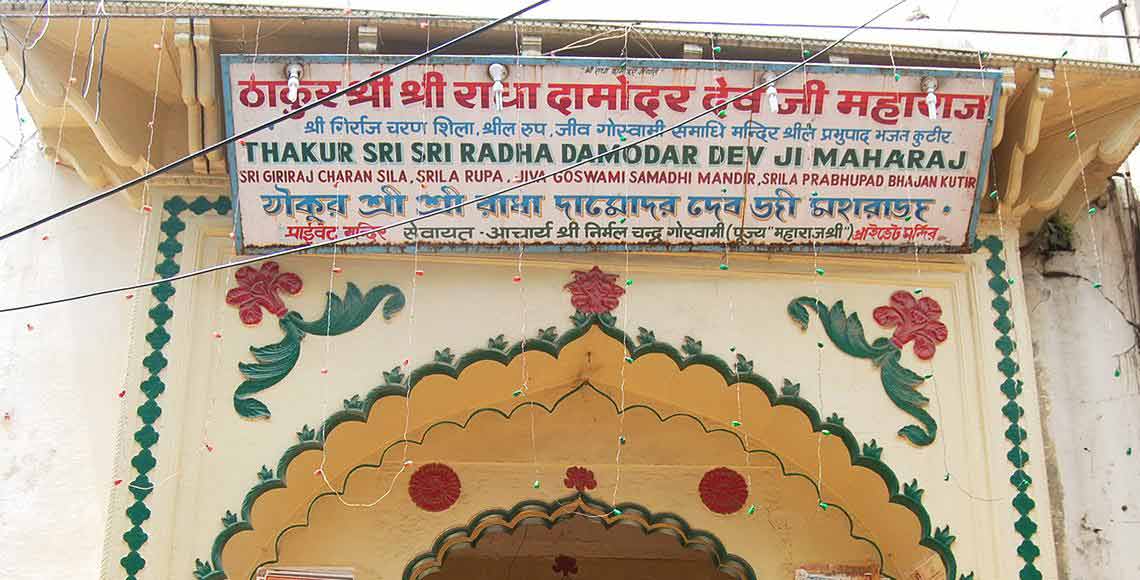 श्री राधा दामोदर जयति
ठाकुर श्री श्री राधा दामोदर देव जी महाराज
श्री गिर्राज चरण शिला, श्रील रुप, जीव गोस्वामी समाधि मन्दिर श्रील प्रभुपाद भजन कुटीर
THAKUR SRI SRI RADHA DAMODAR DEV JI MAHARAJ
SRI GIRIRAJ CHARAN SILA, SRILA RUPA, JIVA GOSWAMI SAMADHI MANDIR, SRILA PRABHUPAD BHAJAN KUTIR
ঠাকুর শ্রী শ্রী রাধা দামোদর দেব জী মহারাজ
प्राईवेट मन्दिर सेवायत - आचार्य श्री निर्मल चन्द्र गोस्वामी (पूज्य "महाराजश्री") প্রাইভেট মন্দির